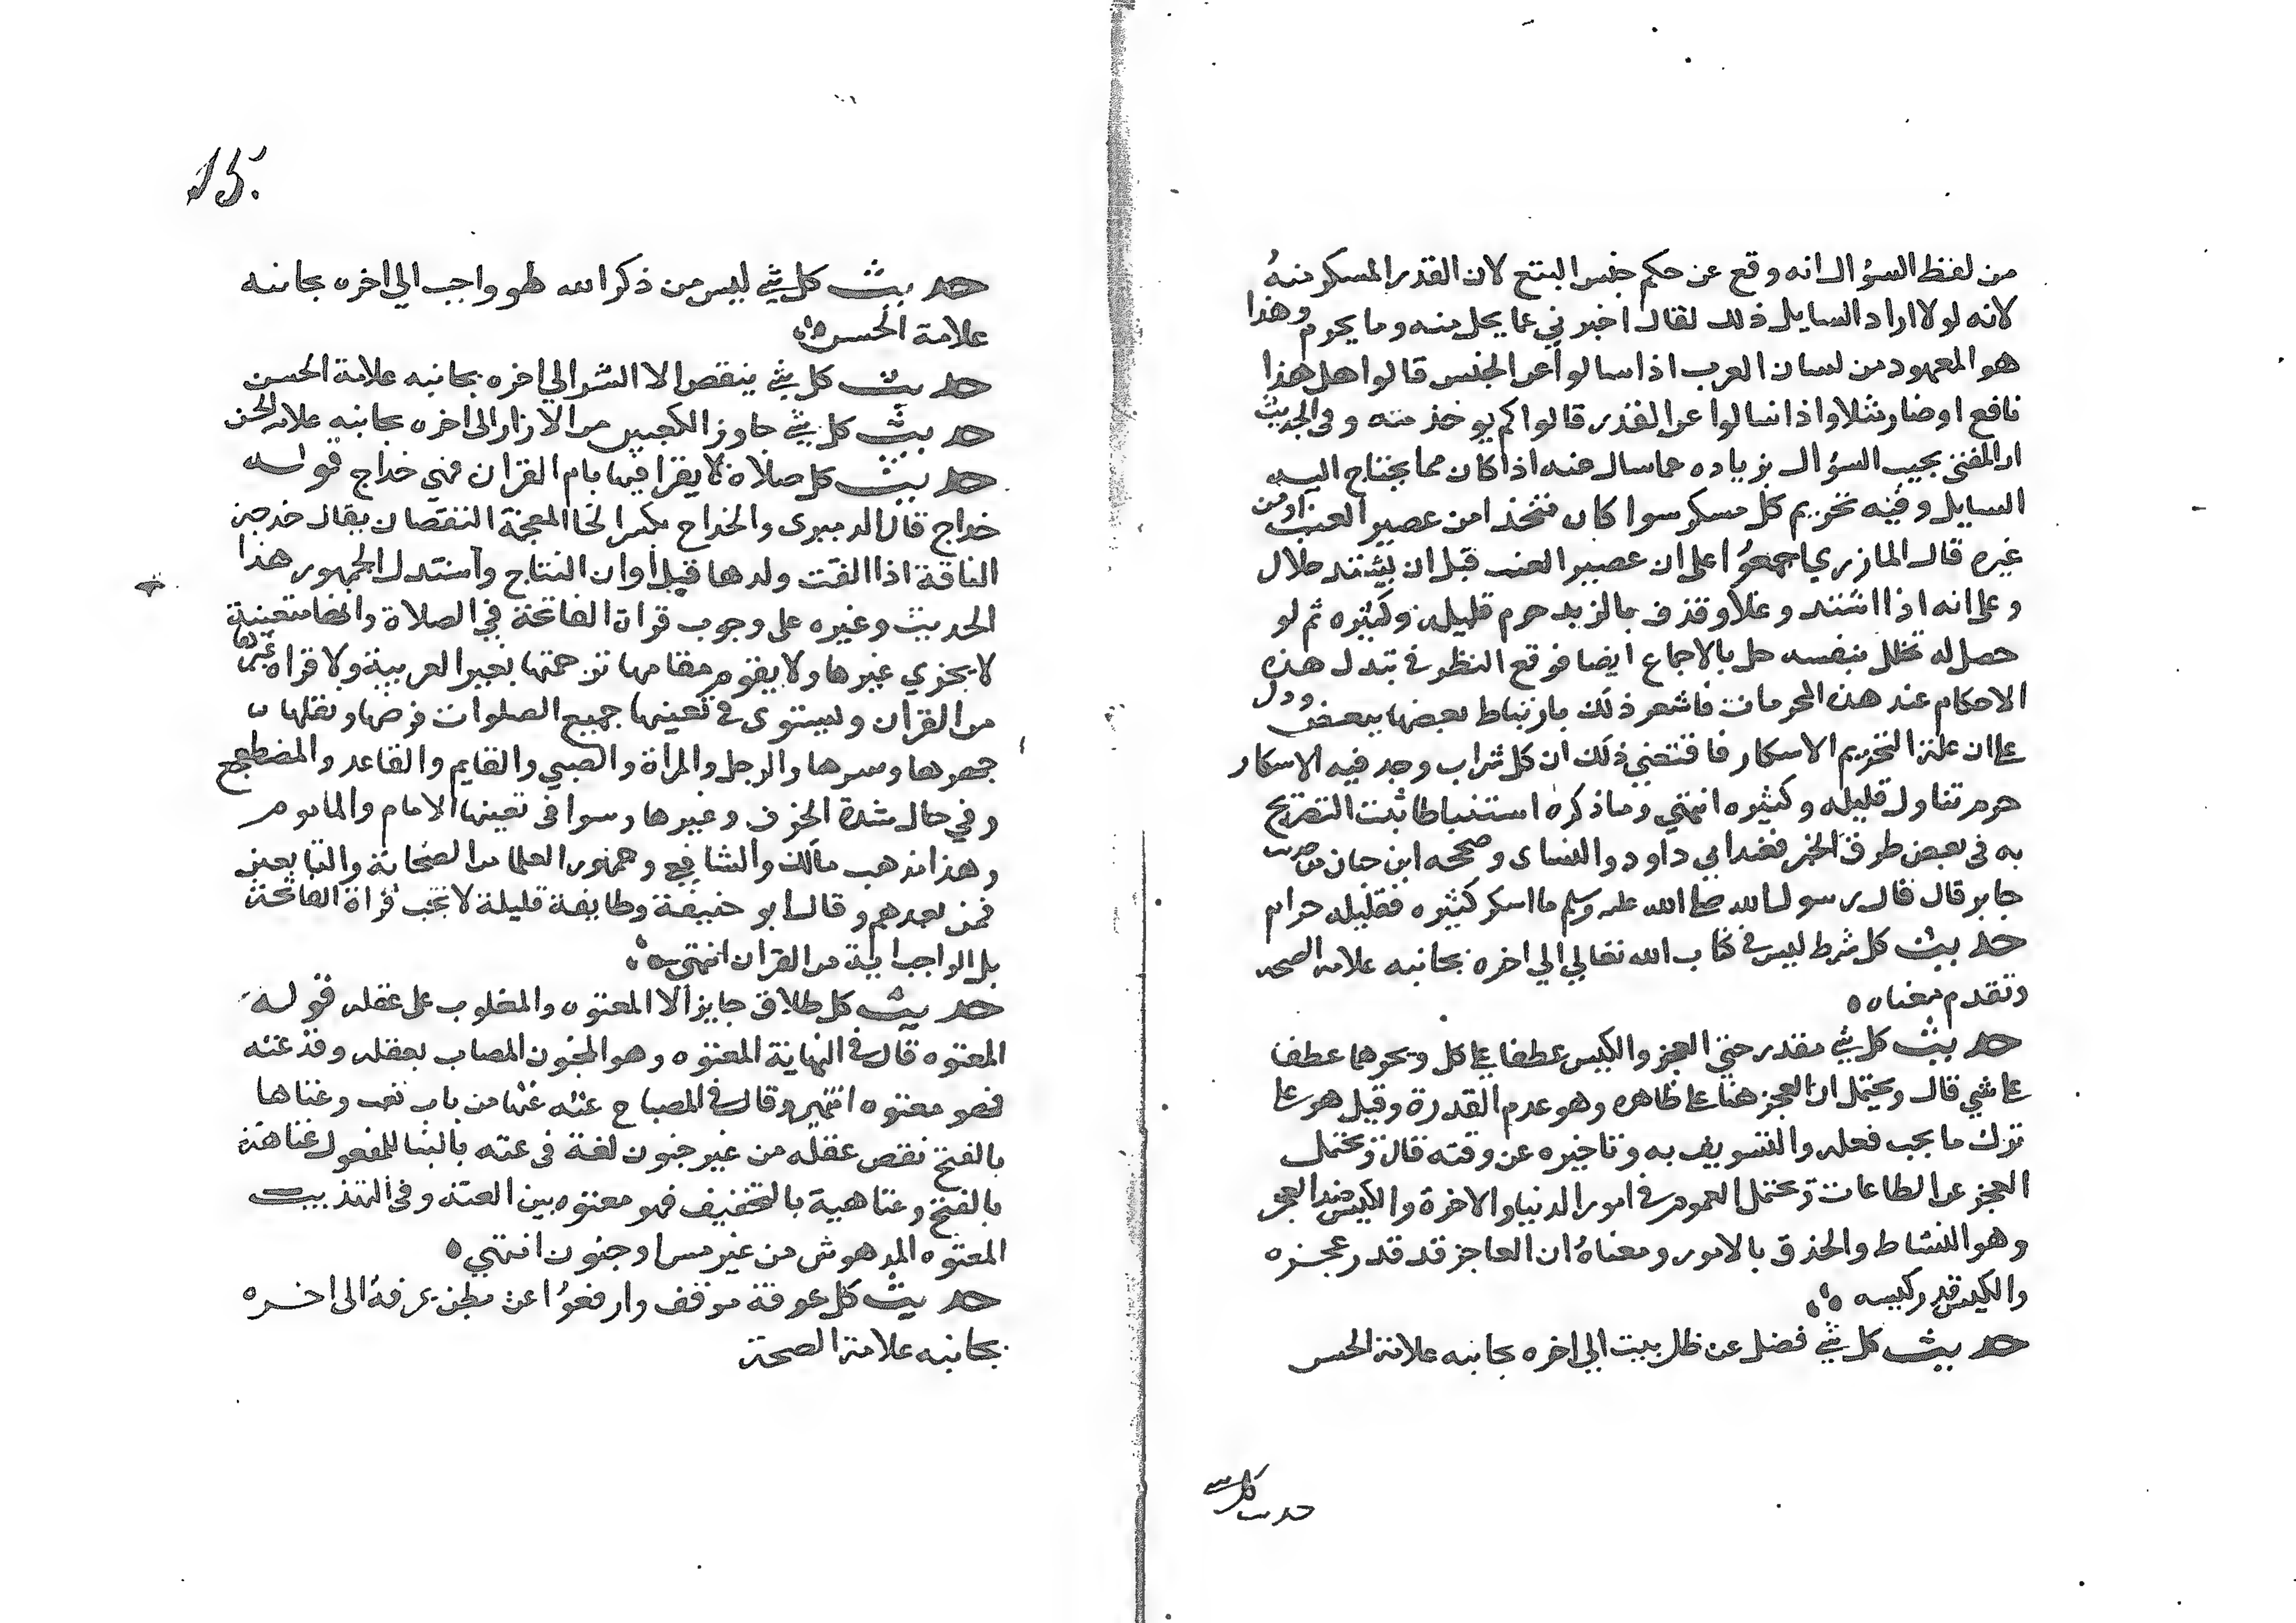 من لفظ السؤال انه وقع عن حكم جنس البتع لان القدر المسكر منه
لانه لولا اراد السايل ذلك لقال اخبرني عما يحل منه وما يحرم وهذا
هو المعهود من لسان العرب اذا سالوا عن الجنس قالوا هل هذا
نافع او ضار مثلا واذا سالوا عن القدر قالوا كم يوخذ منه وفي الحديث
ان المفتي يجيب السؤال بزياده عما سال عنه اذا كان مما يحتاج اليه
السايل وفيه تحريم كل مسكر سوا كان متخذا من عصير العنب او من
غيره قال المازري اجمعوا على ان عصير العنب قبل ان يشتد حلال
وعلى انه اذا اشتد وغلا وقذف بالزبد حرم قليله وكثيره ثم لو
حصل له تخلل بنفسه حل بالاجماع ايضا فوقع النظر في تبدل هذه
الاحكام عند هذه المحرمات فاشعر ذلك بارتباط بعضها ببعض ودل
على ان علة التحريم الاسكار فاقتضي ذلك ان كل شراب وجد فيه الاسكار
حرم تناول قليله وكثيره انتهي وما ذكره استنباطا ثبت التصريح
به في بعض طرق الخبر فعند ابي داود والنساى وصححه ابن حبان من حديث
جابر قال قال رسول الله صلى الله عليه وسلم ما اسكر كثيره فقليله حرام
حديث كل شرط ليس في كتاب الله تعالي الي اخره بجانبه علامة الصحه
وتقدم معناه ه
حديث كل شي بقدر حتي العجز والكيس عطفا على كل وبجرهما عطفا
على شي قال ويحتمل ان العجز هنا على ظاهره وهو عدم القدرة وقيل هو على
ترك ما يجب فعله والتسويف به وتاخيره عن وقته قال ويحتمل
العجز عن الطاعات ويحتمل العموم في امور الدنيا والاخرة والكيس ضد العجز
وهو النشاط والحذق بالامور ومعناه ان العاجز قد قدر عجزه
والكيس قدر كيسه
حديث كل شي فضل عن ظل بيت الي اخره بجانبه علامة الحسن
حديث كل شي
15.
حديث كل شي ليس من ذكر الله لهو واجب الي اخره بجانبه
علامة الحسن
حديث كل شي ينقص الا الشر الي اخره بجانبه علامة الحسن
حديث كل شي جاوز الكعبين من الازار الى اخره بجانبه علامة الحسن
حديث كل صلاة لا يقرا فيها بام القران فهي خداج قوله
خداج قال الدميرى والخداج بكسر الخا المعجمة النقصان يقال خدجت
الناقة اذا القت ولدها قبل اوان النتاج واستدل الجمهور هذا
الحديث وغيره على وجوب قراة الفاتحة في الصلاة وانها متعينة
لا يجزي غيرها ولا يقوم مقامها ترجمتها بغير العربية ولا قراة غيرها
من القران ويستوى في تعينها جميع الصلوات فرضها ونفلها
جهرها وسرها والرجل والمراة والصبي والقايم والقاعد والمضطجع
وفي حال شدة الخوف وغيرها وسوا في تعينها الامام والماموم
وهذا مذهب مالك والشافعي وجمهور العلما من الصحابة والتابعين
فمن بعدهم وقال ابو حنيفة وطايفة قليلة لا تجب قراة الفاتحة
بل الواجب اية من القران انتهي
حديث كل طلاق جايز الا المعتوه والمغلوب على عقله قوله
المعتوه قال في النهاية المعتوه وهو المجنون المصاب بعقله وقد عته
فهو معتوه انتهي وقال في المصباح عته عتها من باب تعب وعتاها
بالفتح نقص عقله من غير جنون لغة في عته بالبنا للمفعول عتاهة
بالفتح وعتاهية بالتخفيف فهو معتوه بين العته وفي التهذيب
المعتوه المدهوش من غير مس او جنون انتهي ه
حديث كل عرفة موقف وارفعوا عن بطن عرفة الى اخره
بجانبه علامة الصحة